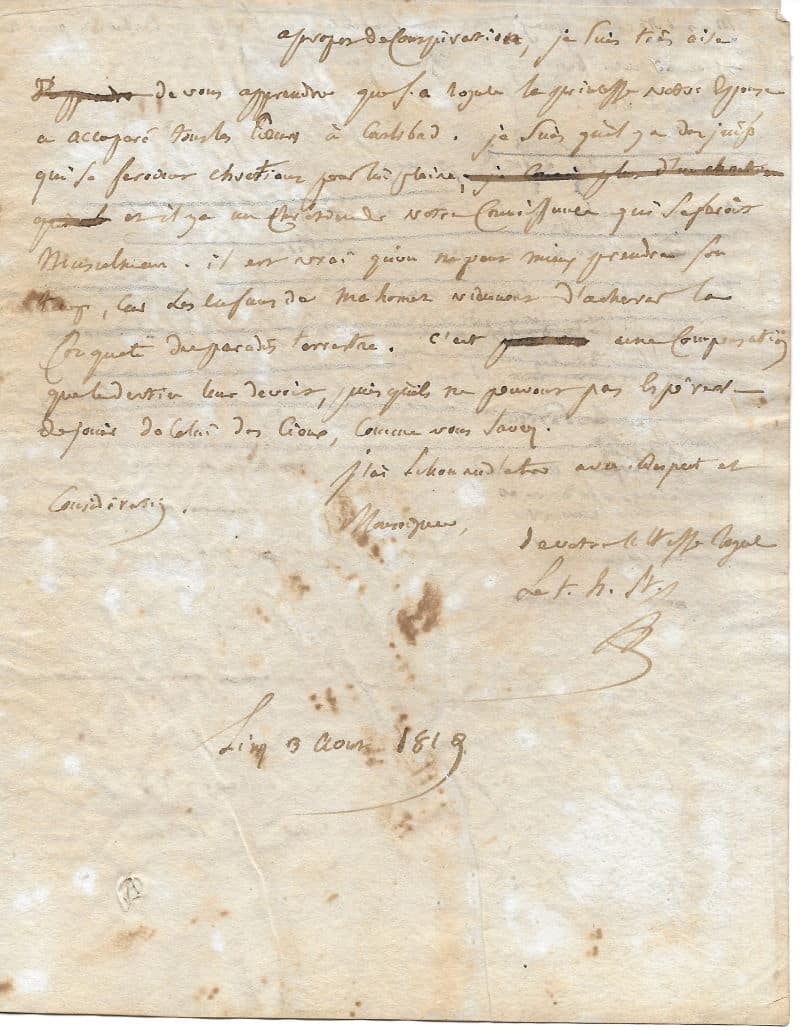 apropos de Conspiration, je suis très aise
D'apprendre de vous apprendre que S. a Royale la princesse votre Epouse
a accaparé tous les Cœurs à Carlsbad. je sais qu'il y a des juifs
qui se feroient chrétiens pour lui plaire, je plus d'un chretien
qui et il y a un Chrétien de votre Connissance qui se feroit
Musulman. il est vrai qu'on ne peut mieux prendre son
temps, Car les enfans de Mahomet viennent d'achever la
Conquet du paradis terrestre. C'est une Compensation
que le destin leur devoit, puisquils ne peuvent pas Espérer
de jouir de Celui des Cieux, Comme vous Savez.
J'ai L'honneur d'etre avec Respect et
Considération.
Monseigneur,
de votre altesse Royale
Le t. h. St.
3 Aout 1818